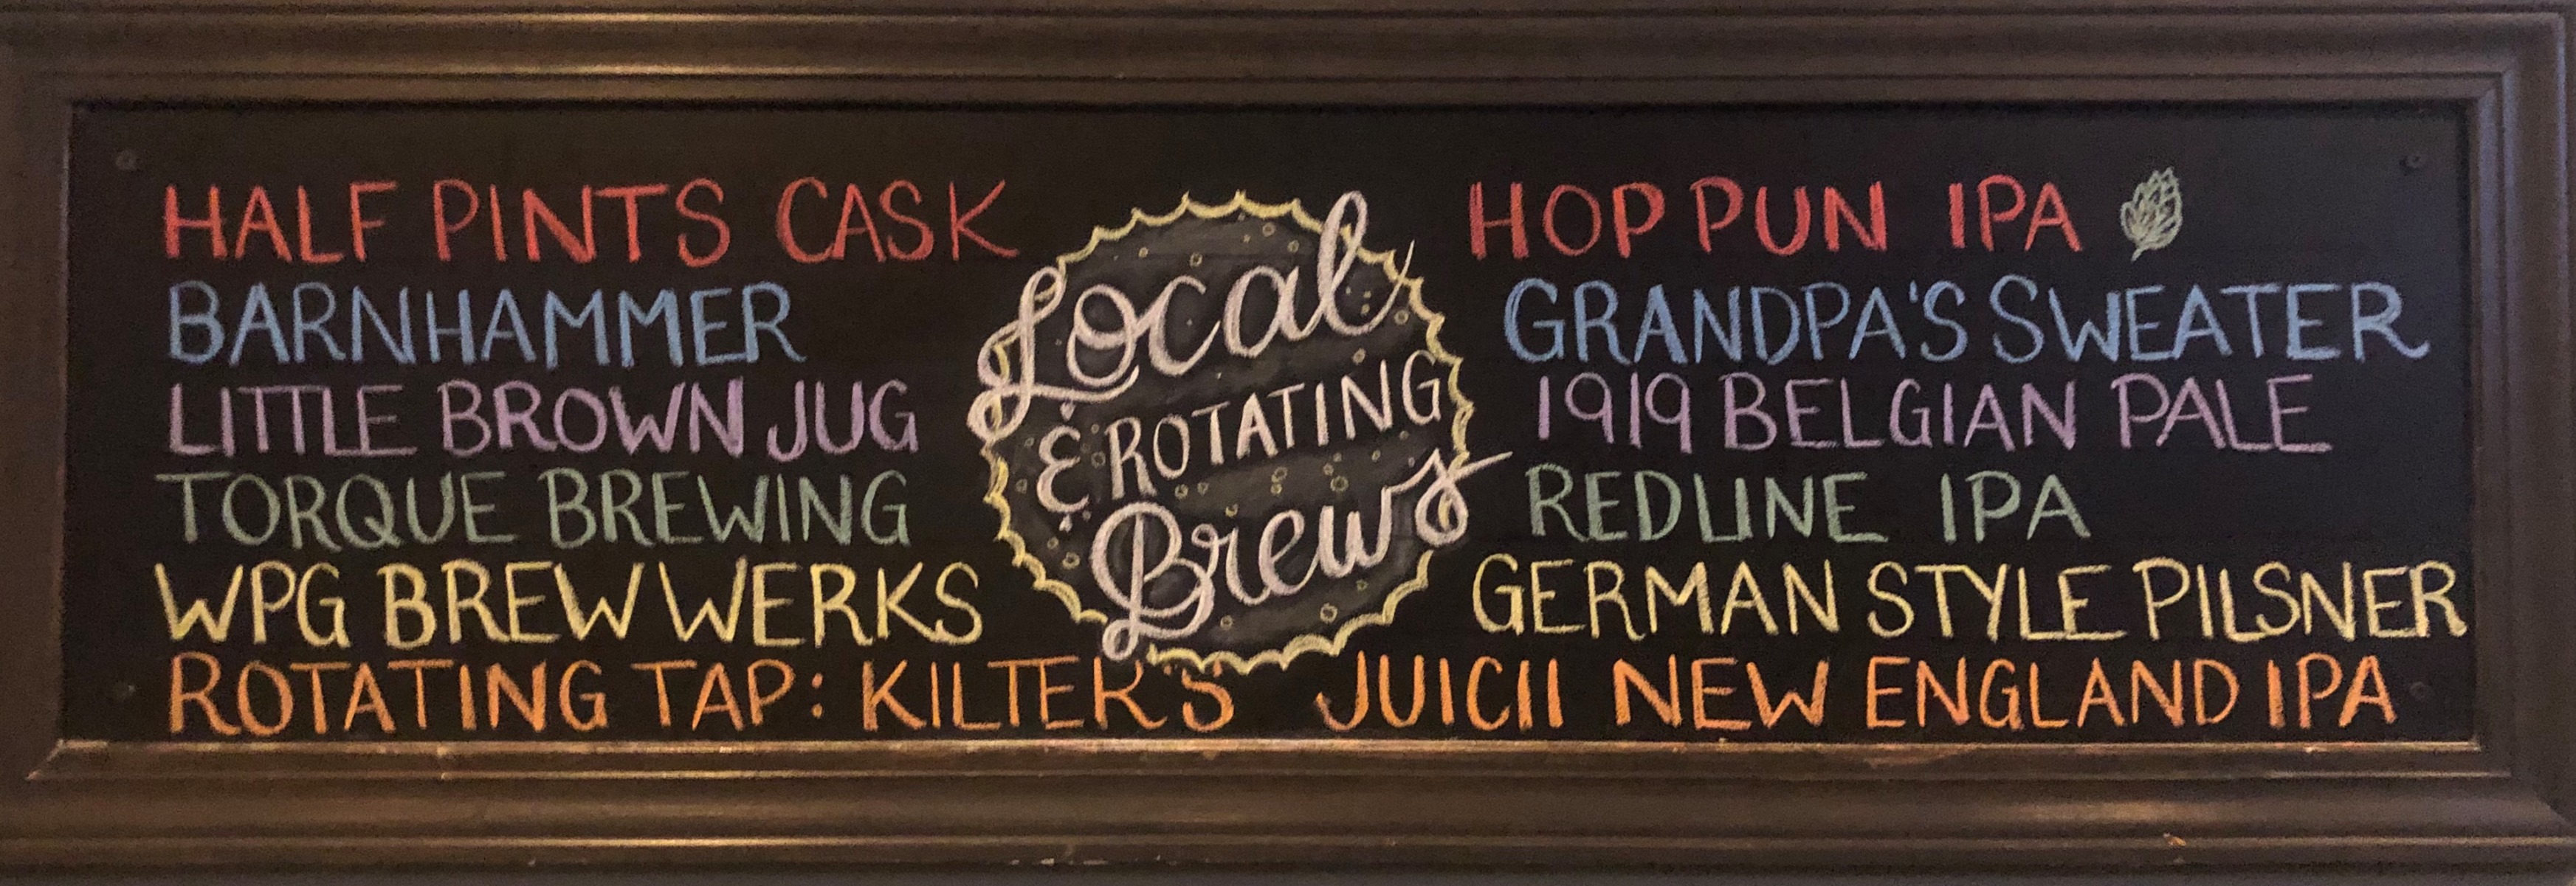 HALF PINTS CASK HOP PUN IPA
BARNHAMMER GRANDPA'S SWEATER
LITTLE BROWN JUG 1919 BELGIAN PALE
TORQUE BREWING REDLINE IPA
WPG BREW WERKS GERMAN STYLE PILSNER
Local
& ROTATING
Brews
ROTATING TAP: KILTER'S JUICII NEW ENGLAND IPA